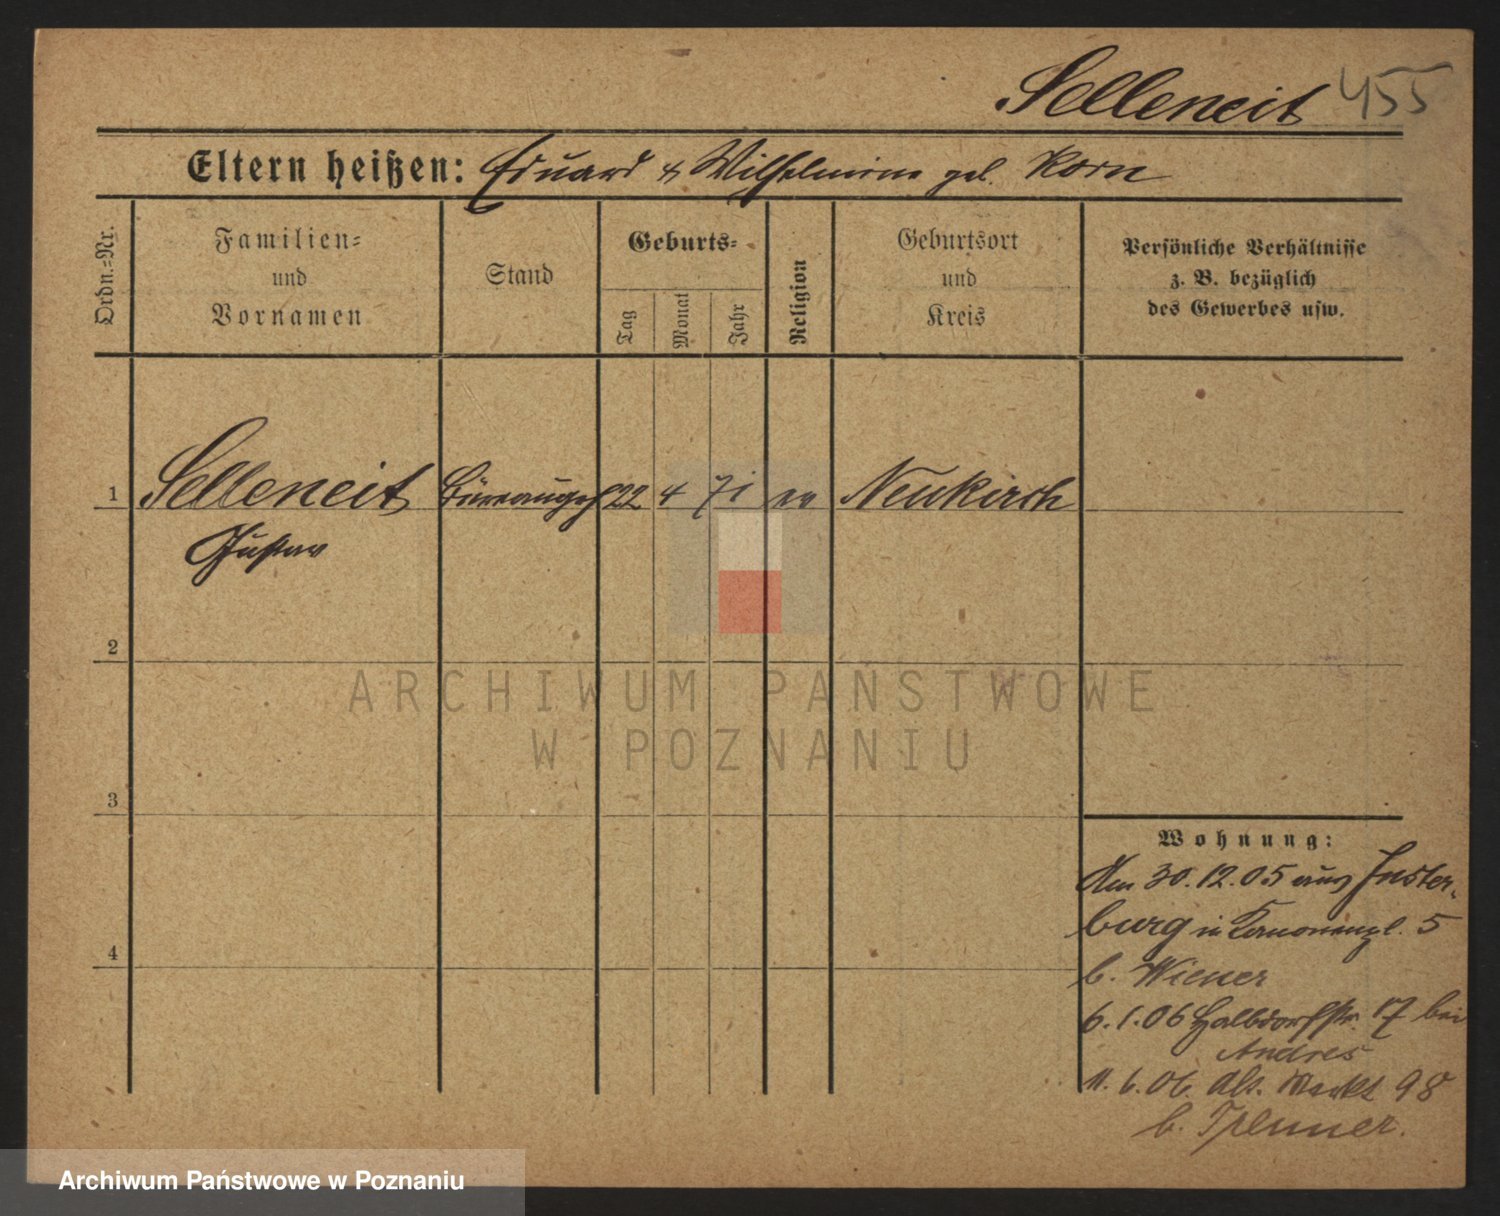 Selleneit 455
Eltern heißen: Eduard & Wilhelmine geb. Korn
Ordn.-Nr.
Familien-
und
Vornamen
Stand
Geburts-
Tag
Monat
Jahr
Religion
Geburtsort
und
Kreis
Persönliche Verhältnisse
z. B. bezüglich
des Gewerbes usw.
1 Selleneit Büreaugeh 22 4 71 ev Neukirch
Gustav
2
ARCHIWUM PAŃSTWOWE
W POZNANIU
3
4
Wohnung:
Am 30.12.05 aus Inster-
burg in Kanonenpl. 5
b. Wiener
6.1.06 Halbdorfstr. 17 bei
Andres
11.6.06. Alt. Markt 98
b.
Archiwum Państwowe w Poznaniu